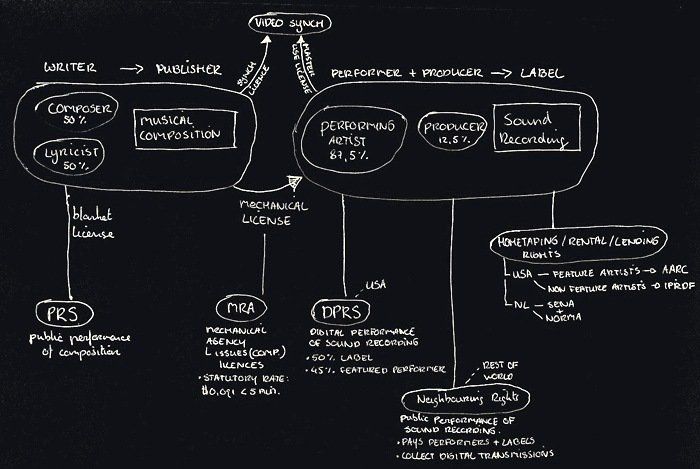 VIDEO SYNCH
SYNCH LICENCE
MASTER USE LICENSE
WRITER → PUBLISHER
PERFORMER + PRODUCER → LABEL
COMPOSER
50%
MUSICAL
COMPOSITION
LYRICIST
50%
PERFORMING
ARTIST
87,5%
PRODUCER
12,5%
Sound
Recording
blanket
license
MECHANICAL
LICENSE
HOMETAPING/RENTAL/LENDING
RIGHTS
USA — FEATURE ARTISTS → AARC
NON FEATURE ARTISTS → IPRDF
NL — SENA
+
NORMA
PRS
public performance
of composition
MRA
MECHANICAL
AGENCY
ISSUES (COMP.)
LICENCES
• STATUTORY RATE:
$0,091 < 5 min.
USA
DPRS
DIGITAL PERFORMANCE
OF SOUND RECORDING
• 50% LABEL
• 45% FEATURED PERFORMER
REST OF
WORLD
Neighbouring Rights
PUBLIC PERFORMANCE OF
SOUND RECORDING.
• PAYS PERFORMERS + LABELS
• COLLECT DIGITAL TRANSMISSIONS